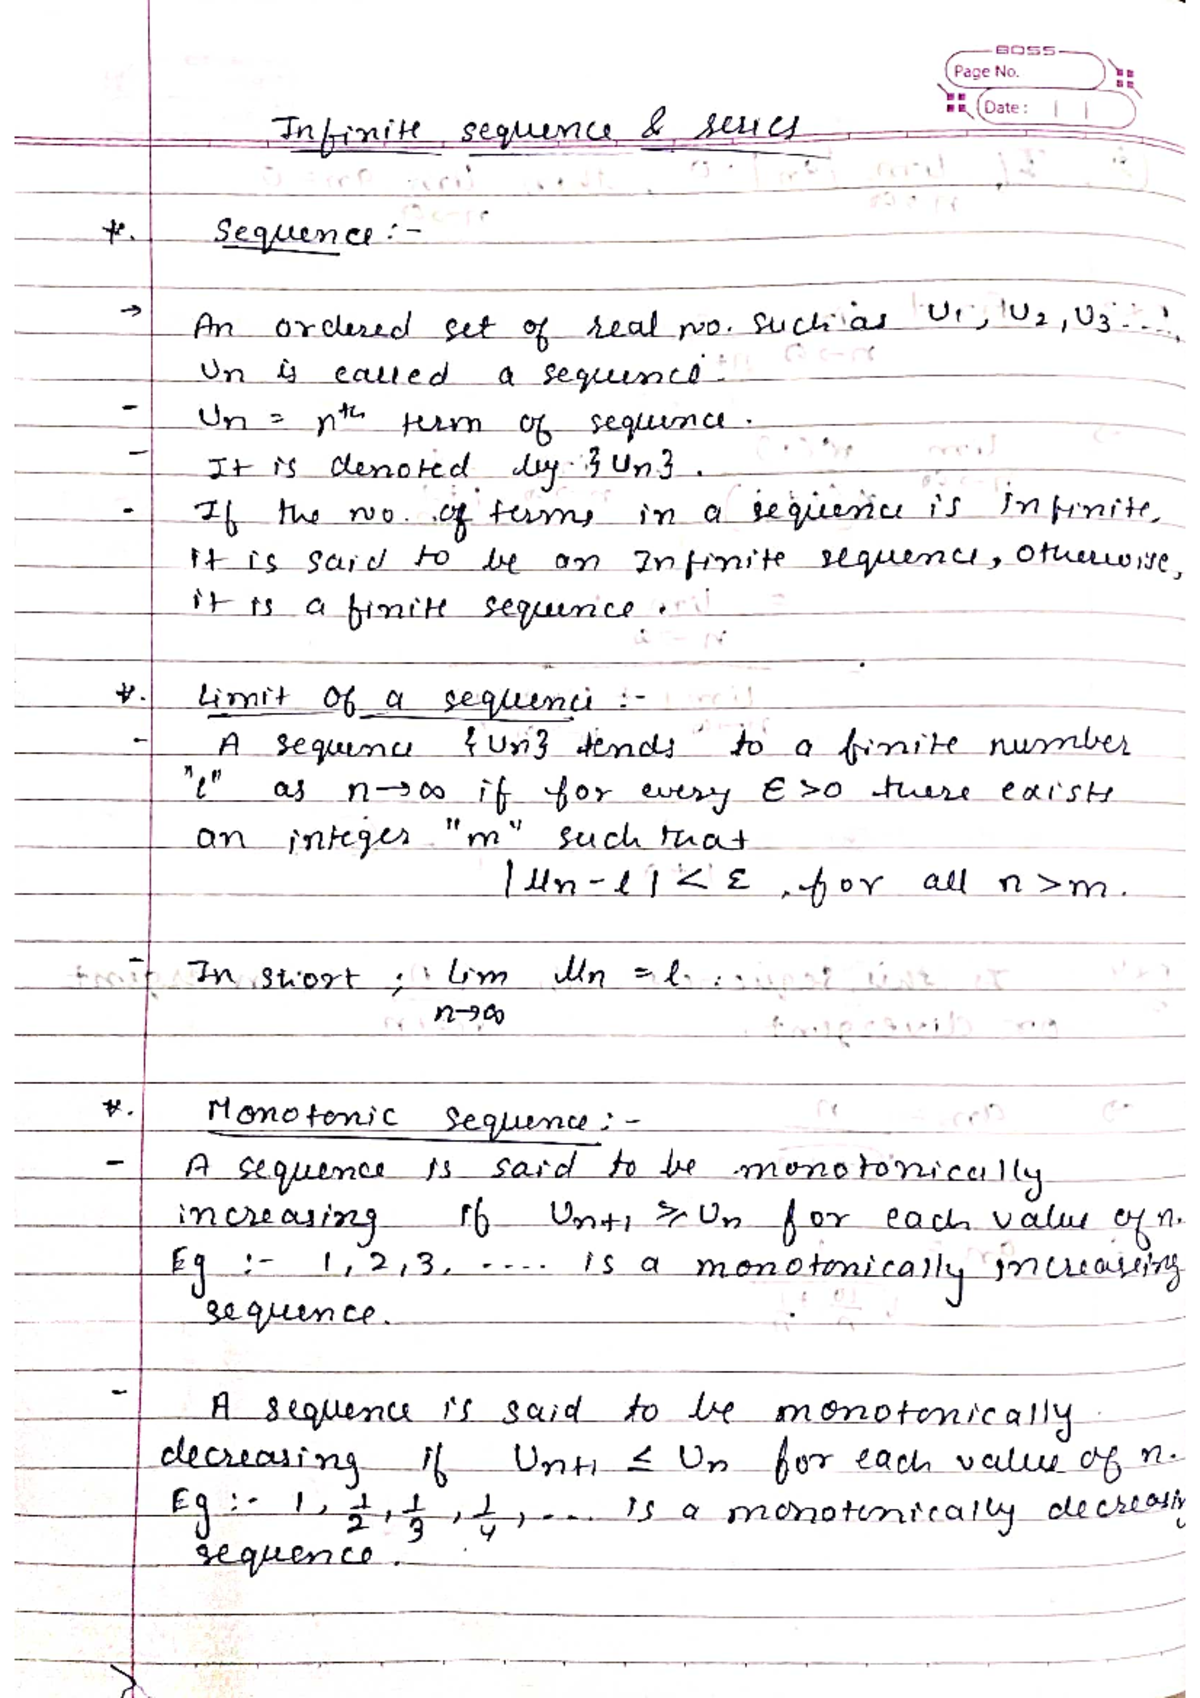 BOSS
Page No.
Date :
Infinite sequence & series
*. Sequence :-
→ An ordered set of real no. such as U1, U2, U3 ....,
Un is called a sequence.
- Un = nth term of sequence.
- It is denoted by {Un}.
- If the no. of terms in a sequence is infinite,
it is said to be an Infinite sequence, otherwise,
it is a finite sequence.
*. Limit of a sequence :-
- A sequence {Un} tends to a finite number
"l" as n→∞ if for every ε>0 there exists
an integer "m" such that
|Un - l| < ε , for all n>m.
- In short ; lim Un = l.
n→∞
*. Monotonic sequence :-
- A sequence is said to be monotonically
increasing if Un+1 ≥ Un for each value of n.
Eg :- 1, 2, 3, .... is a monotonically increasing
sequence.
- A sequence is said to be monotonically
decreasing if Un+1 ≤ Un for each value of n.
Eg :- 1, 1/2, 1/3, 1/4, .... is a monotonically decreasin
sequence.